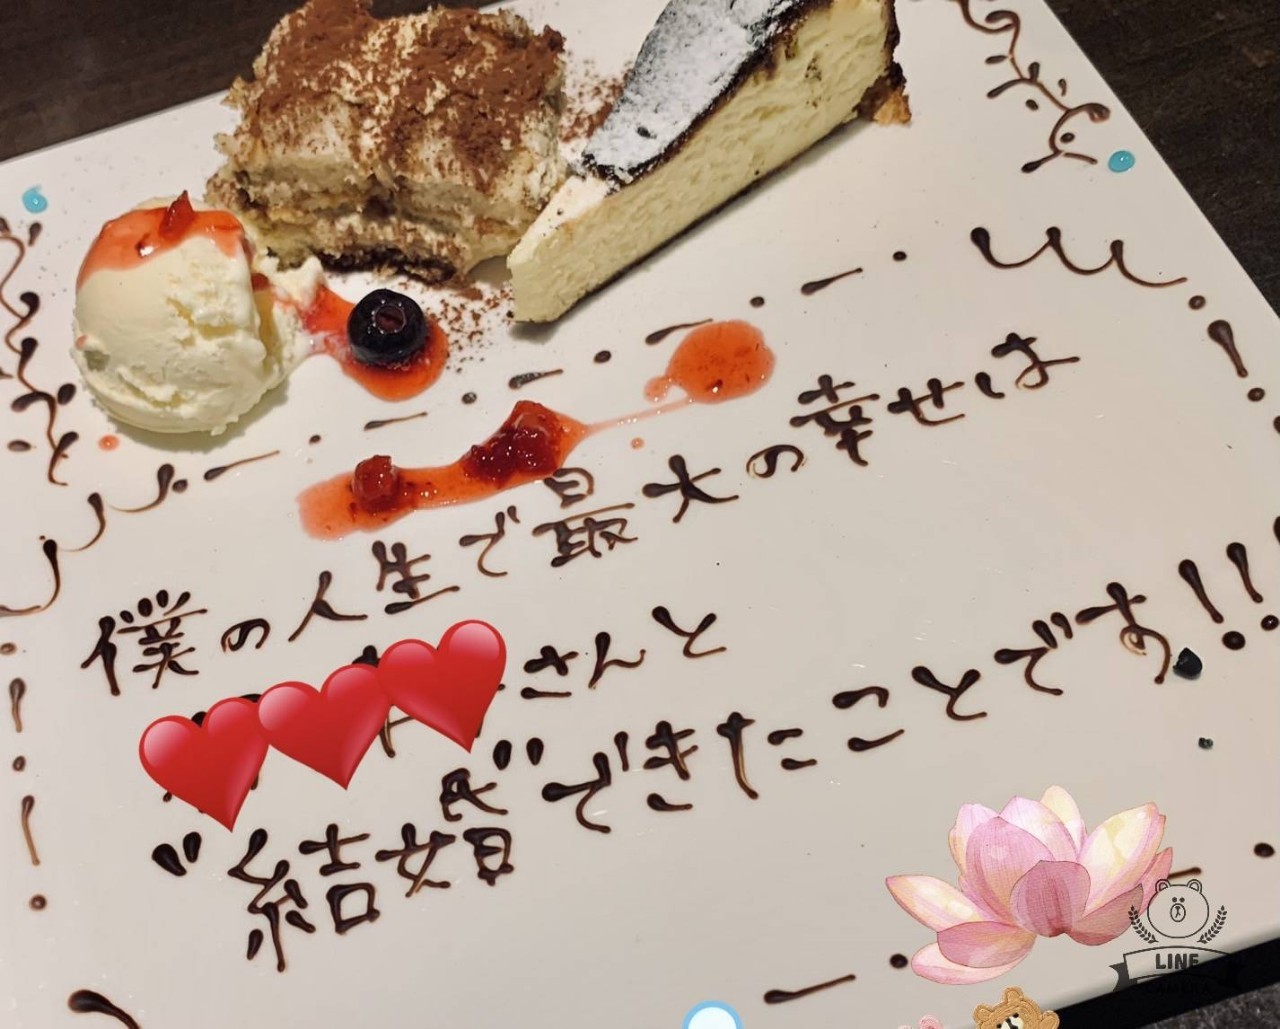 僕の人生で最大の幸せは
さんと
"結婚"できたことです!!
LINE
CAMERA